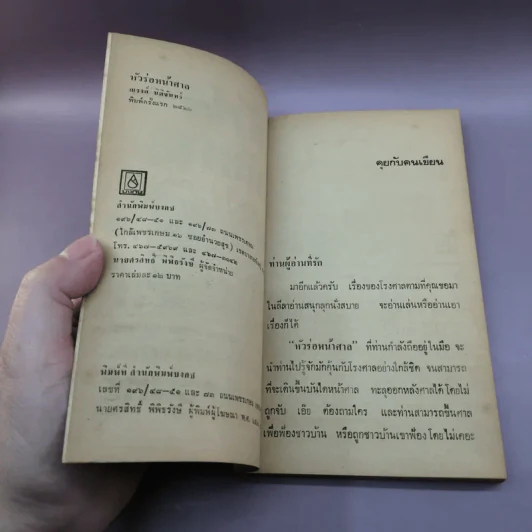 หัวร่อหน้าศาล
ณรงค์ นิติจันทร์
พิมพ์ครั้งแรก ๒๕๒๑
บงกช
สำนักพิมพ์บงกช
๑๙๖/๔๘-๕๑ และ ๑๙๖/๘๓ ถนนเพชรเกษม
(ใกล้เพชรเกษม ๑๖ ซอยอำนวยสุข)
โทร. ๔๖๘-๕๙๖๙ และ
นายศรสิทธิ์ พิพิธรังษี ผู้จัดจำหน่าย
ราคาเล่มละ ๑๒ บาท
พิมพ์ที่ สำนักพิมพ์บงกช
เลขที่ ๑๙๖/๔๘-๕๑ และ ๘๓ ถนนเพชรเกษม
นายศรสิทธิ์ พิพิธรังษี ผู้พิมพ์ผู้โฆษณา พ.ศ.
คุยกับคนเขียน
ท่านผู้อ่านที่รัก
มาอีกแล้วครับ เรื่องของโรงศาลตามที่คุณขอมา
ในลีลาอ่านสนุกลุกนั่งสบาย จะอ่านเล่นหรืออ่านเอา
เรื่องก็ได้
"หัวร่อหน้าศาล" ที่ท่านกำลังถืออยู่ในมือ จะ
นำท่านไปรู้จักมักคุ้นกับโรงศาลอย่างใกล้ชิด จนสามารถ
ที่จะเดินขึ้นบันไดหน้าศาล ทะลุออกหลังศาลได้โดยไม่
ถูกจับ เอ๊ย ต้องถามใคร และท่านสามารถขึ้นศาล
เพื่อฟ้องชาวบ้าน หรือถูกชาวบ้านเขาฟ้อง โดยไม่เคอะ